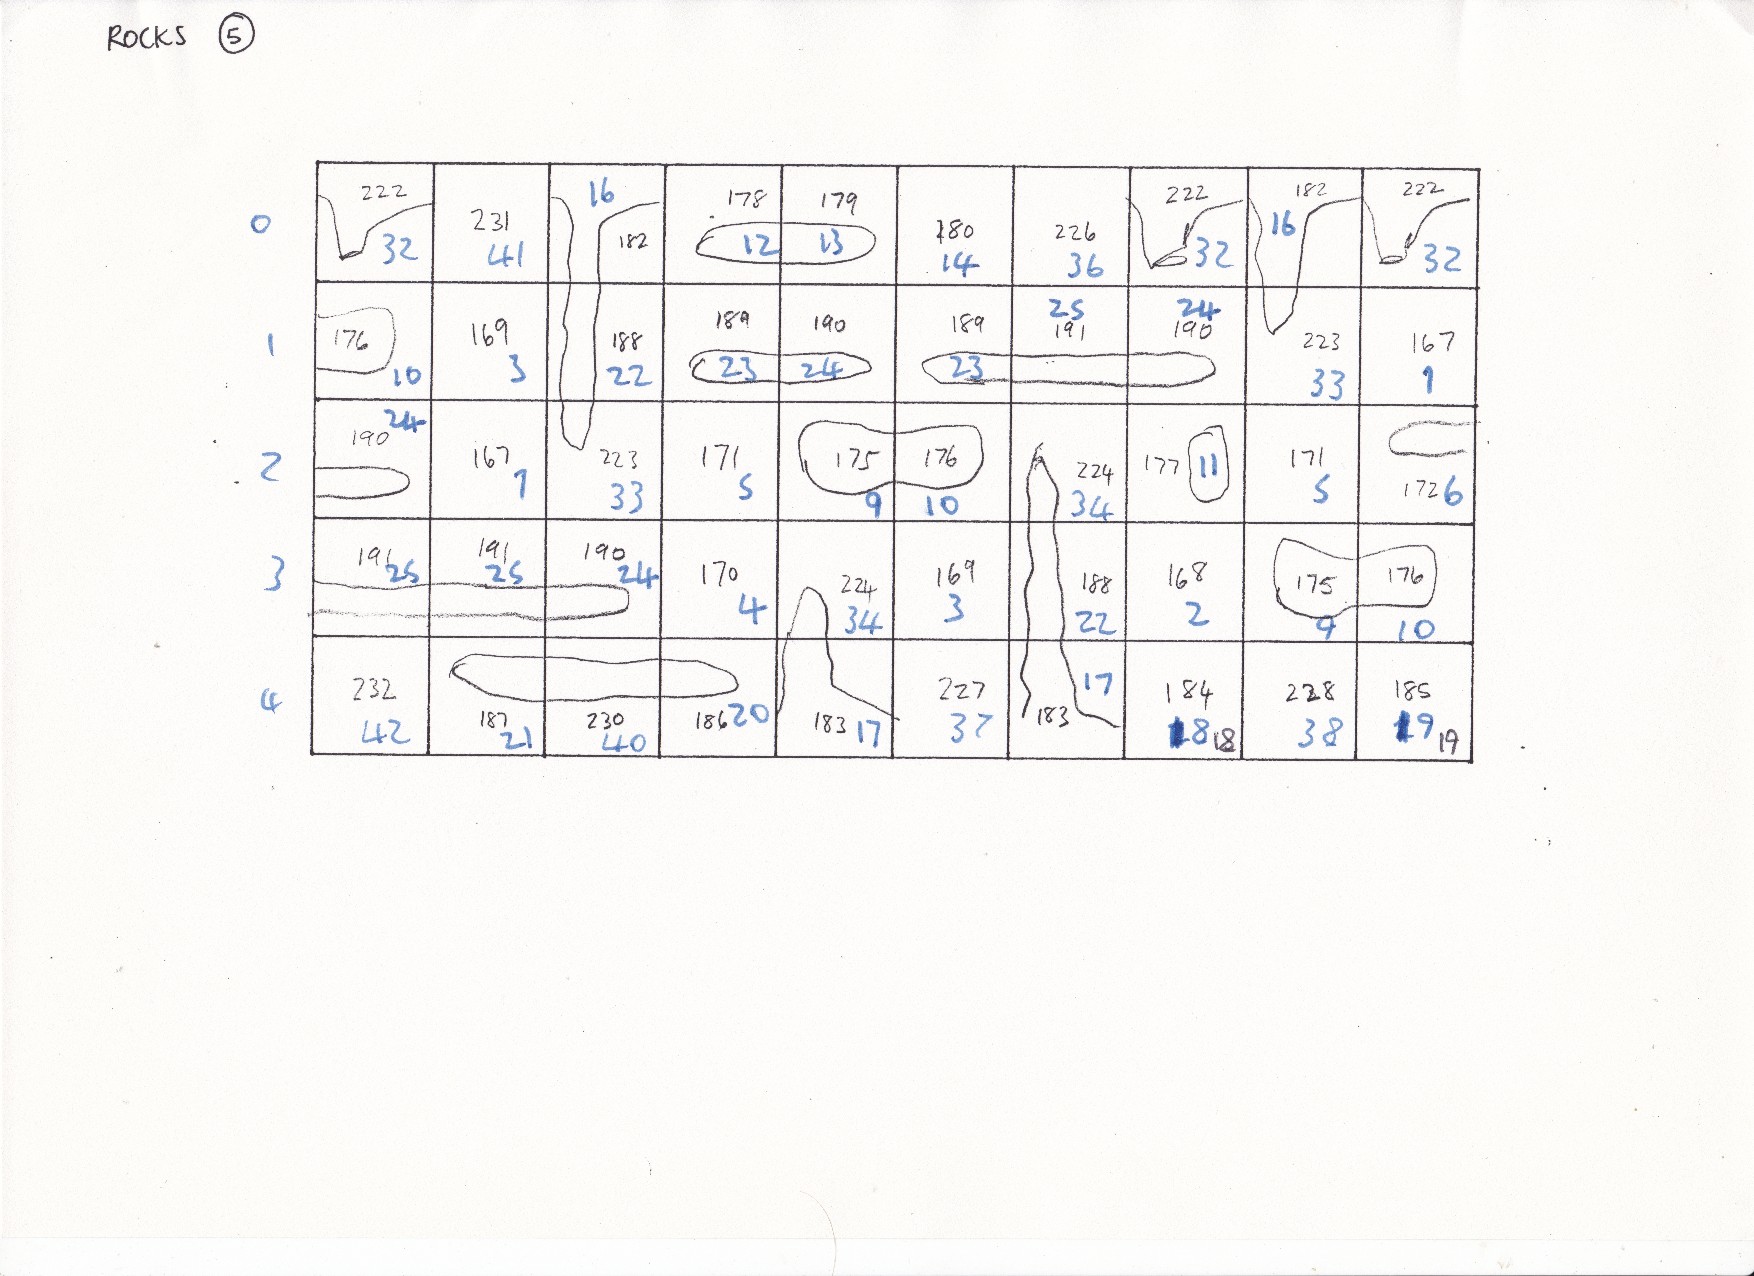 ROCKS 5
0 222 32 231 41 16 182 178 12 179 13 180 14 226 36 222 32 182 16 222 32
1 176 10 169 3 188 22 189 23 190 24 189 23 25 191 24 190 223 33 167 1
2 190 24 167 1 223 33 171 5 175 9 176 10 224 34 177 11 171 5 172 6
3 191 25 191 25 190 24 170 4 224 34 169 3 188 22 168 2 175 9 176 10
4 232 42 187 21 230 40 186 20 183 17 227 37 183 17 184 18 18 228 38 185 19 19